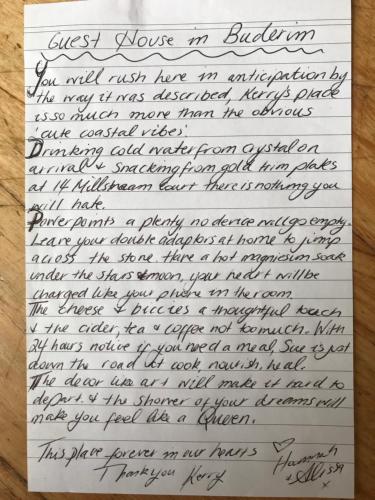 Guest House in Buderim
You will rush here in anticipation by
the way it was described, Kerry's place
is so much more than the obvious
'cute coastal vibes'.
Drinking cold water from crystal on
arrival & snacking from gold trim plates
at 14 Millstream Court there is nothing you
will hate.
Powerpoints a plenty no device will go empty.
Leave your double adaptors at home to jump
across the stone. Have a hot magnesium soak
under the stars & moon, your heart will be
charged like your phone in the room.
The cheese & biccies a thoughtful touch
& the cider, tea & coffee not too much. With
24 hours notice if you need a meal, Sue is just
down the road at cook, nourish, heal.
The decor like art will make it hard to
depart, & the shower of your dreams will
make you feel like a Queen.
This place forever in our hearts
Thankyou Kerry
Hannah
& Alissa
x